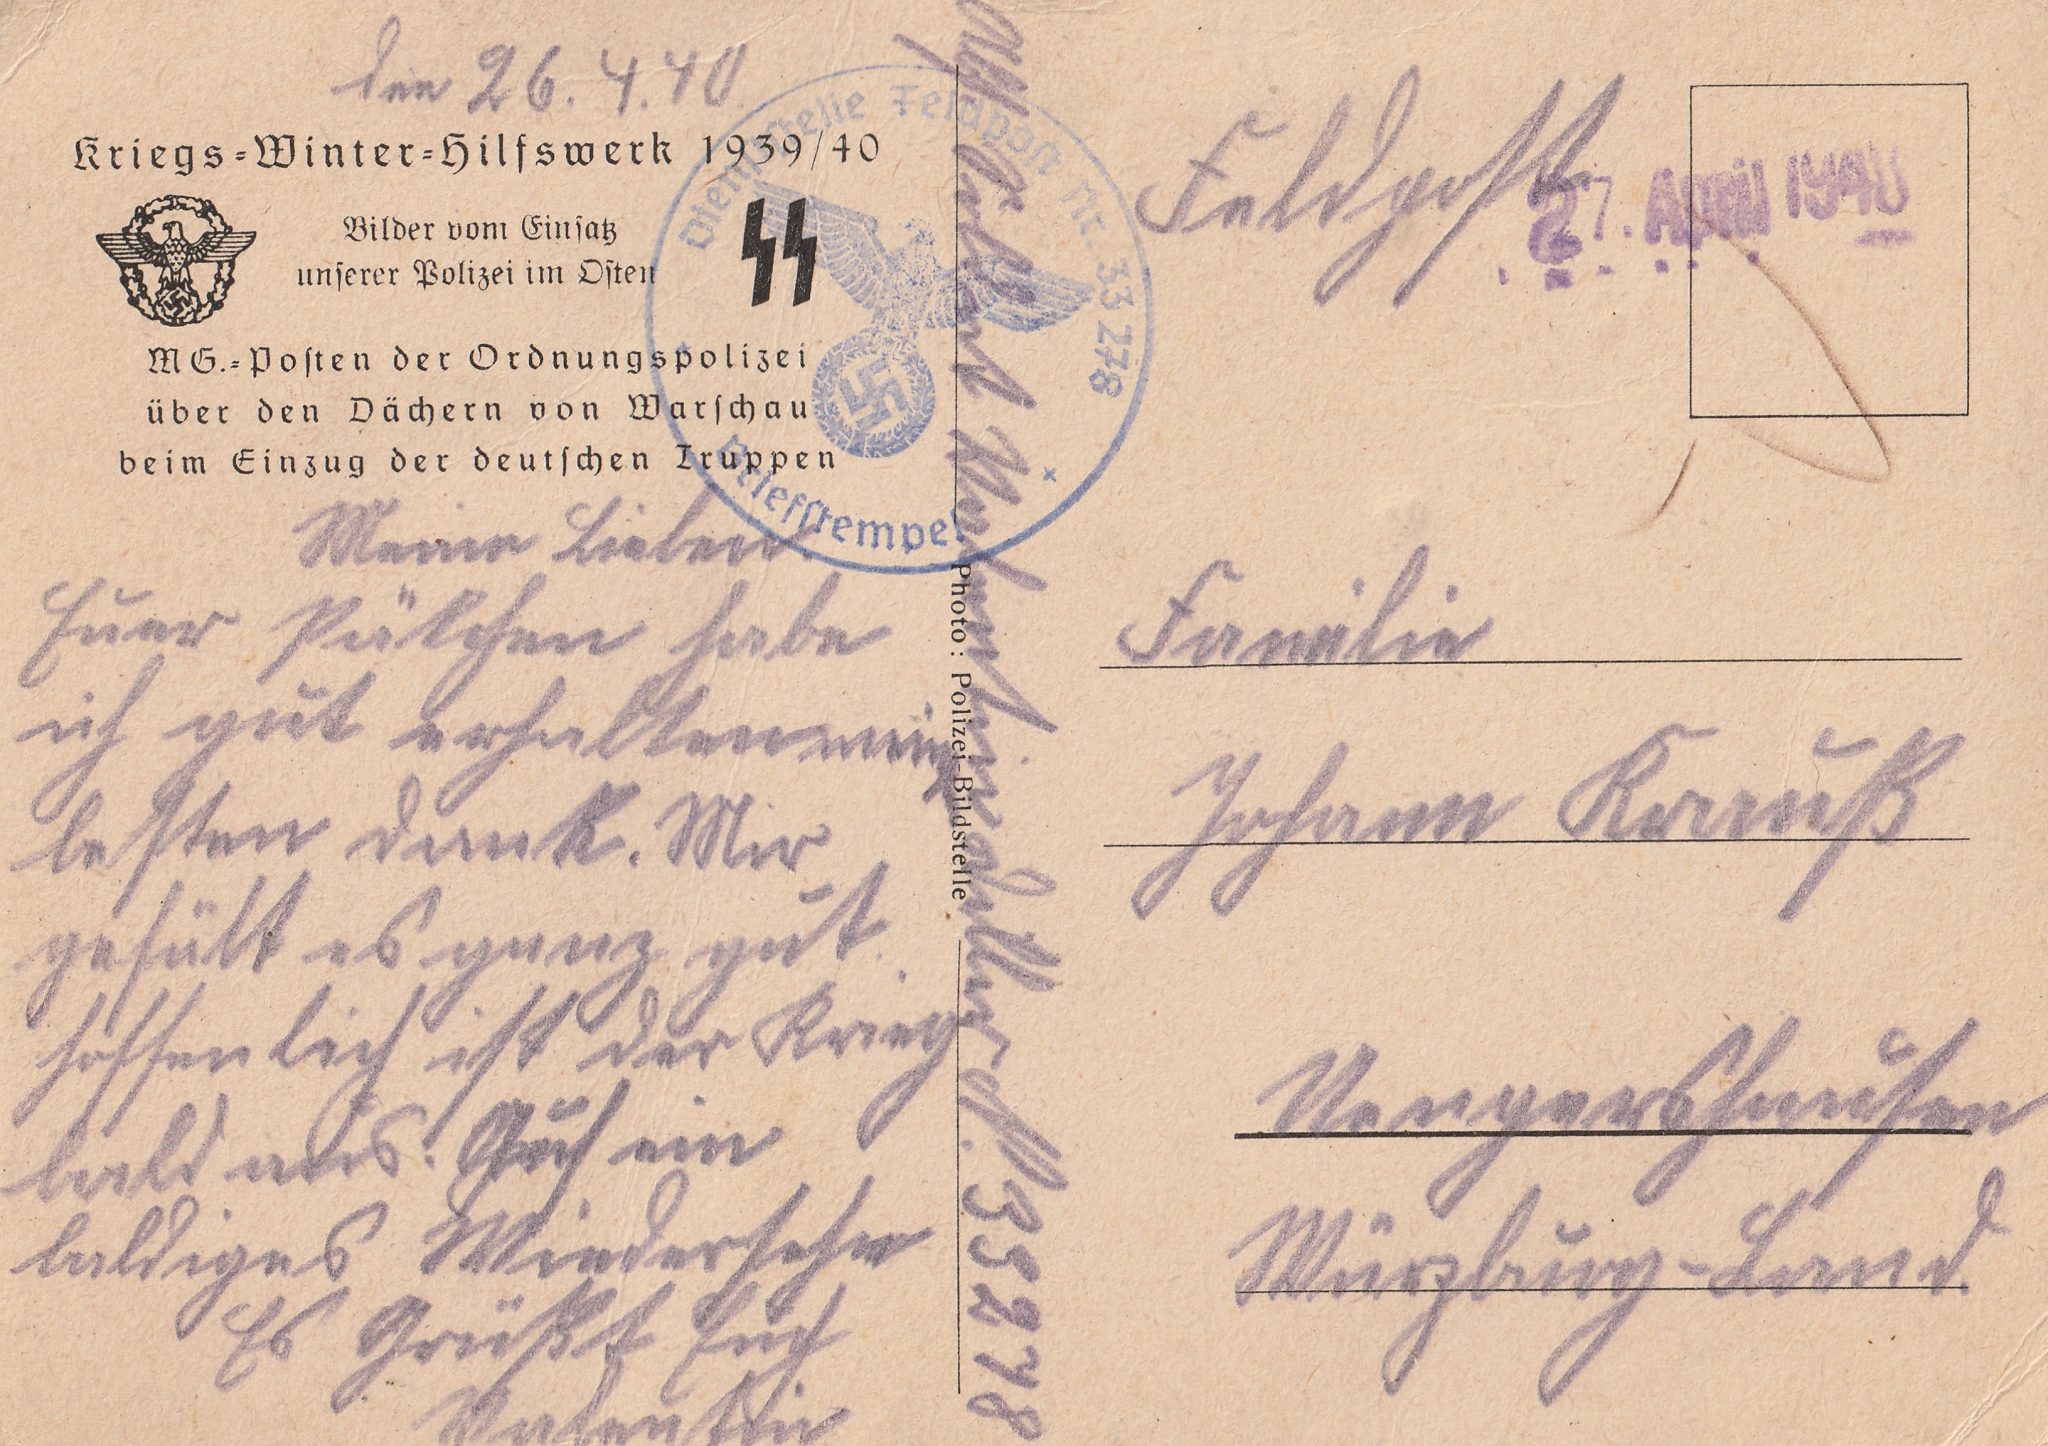 den 26.4.40.
Kriegs-Winter-Hilfswerk 1939/40
Bilder vom Einsatz
unserer Polizei im Osten
MG.-Posten der Ordnungspolizei
über den Dächern von Warschau
beim Einzug der deutschen Truppen
Dienststelle Feldpost Nr. 33278
Briefstempel
Meine Lieben.
Euer Päkchen habe
ich gut erhalten mein
besten Dank. Mir
gefält es ganz gut.
hoffenlich ist der Krieg
bald aus. Auch ein
baldiges Wiedersehn
Es Grüßt Euch
Valentin
Photo: Polizei-Bildstelle
35278
Feldpost
27. April 1940
Familie
Johann Krauß
Ungershausen
Würzburg-Land